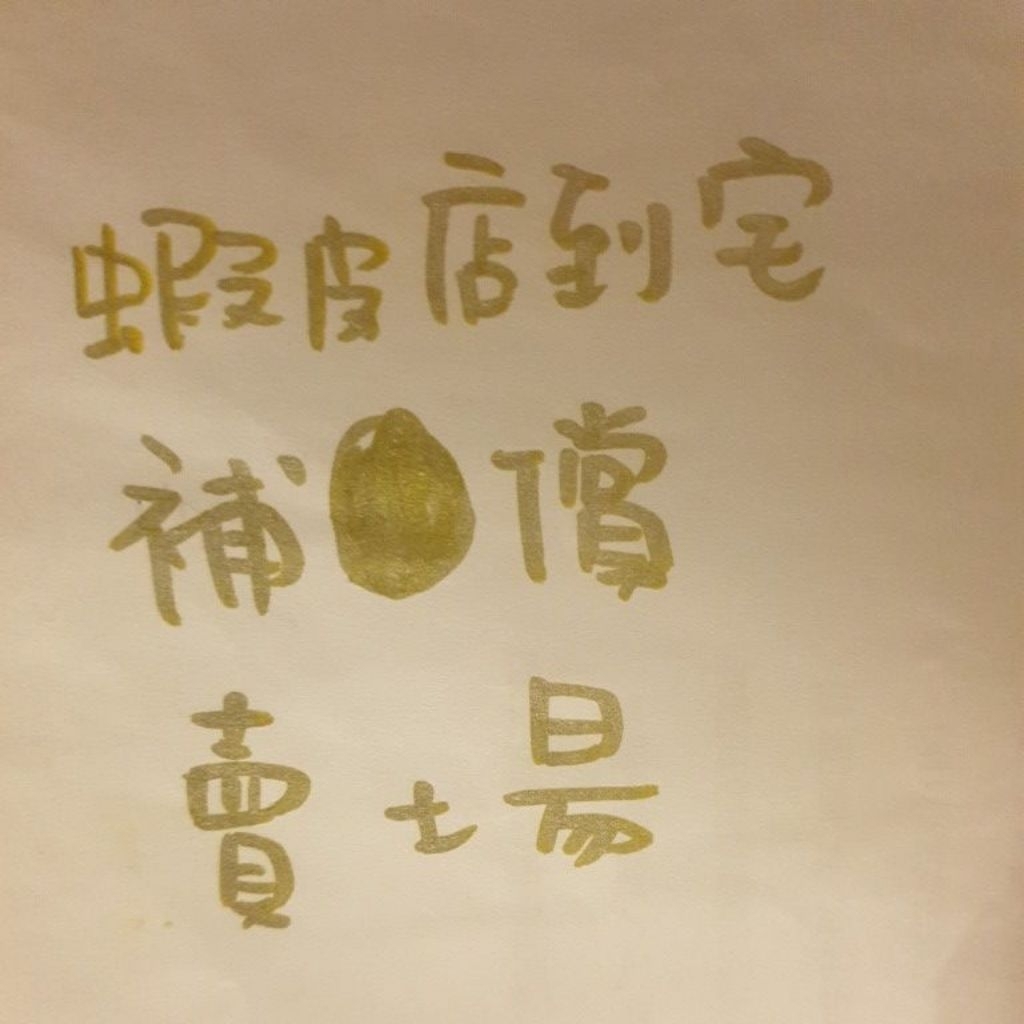 蝦皮店到宅
補償
賣場